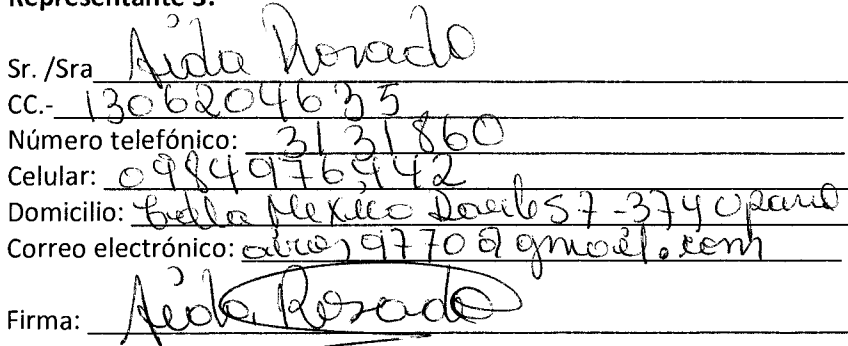 Representante 3:
Sr. /Sra Aida Rosado
CC.- 1306204635
Número telefónico: 3131860
Celular: 0984976442
Domicilio: México S7-374
Correo electrónico: @gmail.com
Firma: Aida Rosado